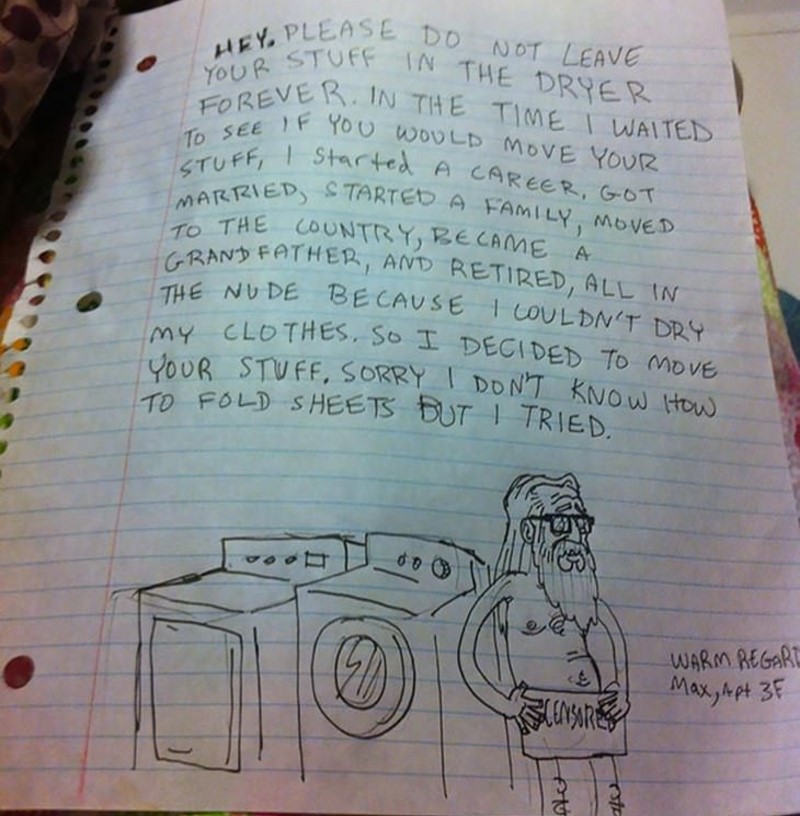 HEY. PLEASE DO NOT LEAVE
YOUR STUFF IN THE DRYER
FOREVER. IN THE TIME I WAITED
TO SEE IF YOU WOULD MOVE YOUR
STUFF, I Started A CAREER, GOT
MARRIED, STARTED A FAMILY, MOVED
TO THE COUNTRY, BECAME A
GRANDFATHER, AND RETIRED, ALL IN
THE NUDE BECAUSE I COULDN'T DRY
MY CLOTHES. SO I DECIDED TO MOVE
YOUR STUFF. SORRY I DON'T KNOW HOW
TO FOLD SHEETS BUT I TRIED.
WARM REGARD
Max, Apt 3F
CENSORED